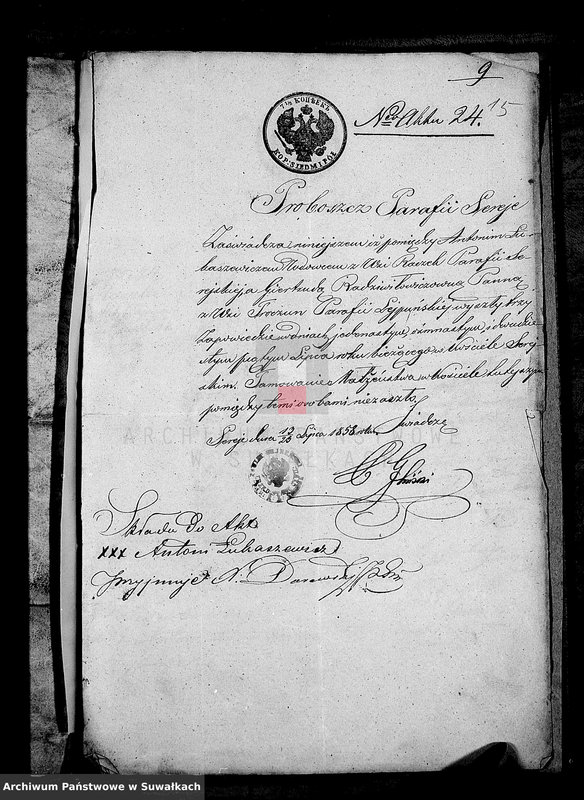 9
15
7½ КОПѢЕКЪ
KOP: SIEDM I PÓŁ
No Aktu 24.
Proboszcz Parafii Sereje
Zaświadcza niniejszem iż pomiędzy Antonim Łu-
kaszewiczem Wdowcem z Wsi Raczek Parafii Se-
rejskiej a Giertrudą Radziwiłowiczowną Panną
z Wsi Troczun Parafii Sejpuńskiej wyszły trzy
Zapowiedzie w dniach jedenastym, ośmnastym, i dwudzie-
stym piątym Lipca roku bieżącego w Kościele Serej-
skim. Tamowanie Małżeństwa w Kościele tutejszym
pomiędzy temi osobami niezaszło
Świadczę
Sereje dnia 13/25 Lipca 1858 roku
Składa do Akt
xxx Antoni Łukaszewicz
Przyjmuje
ARCHIWUM PAŃSTWOWE
W SUWAŁKACH
Archiwum Państwowe w Suwałkach